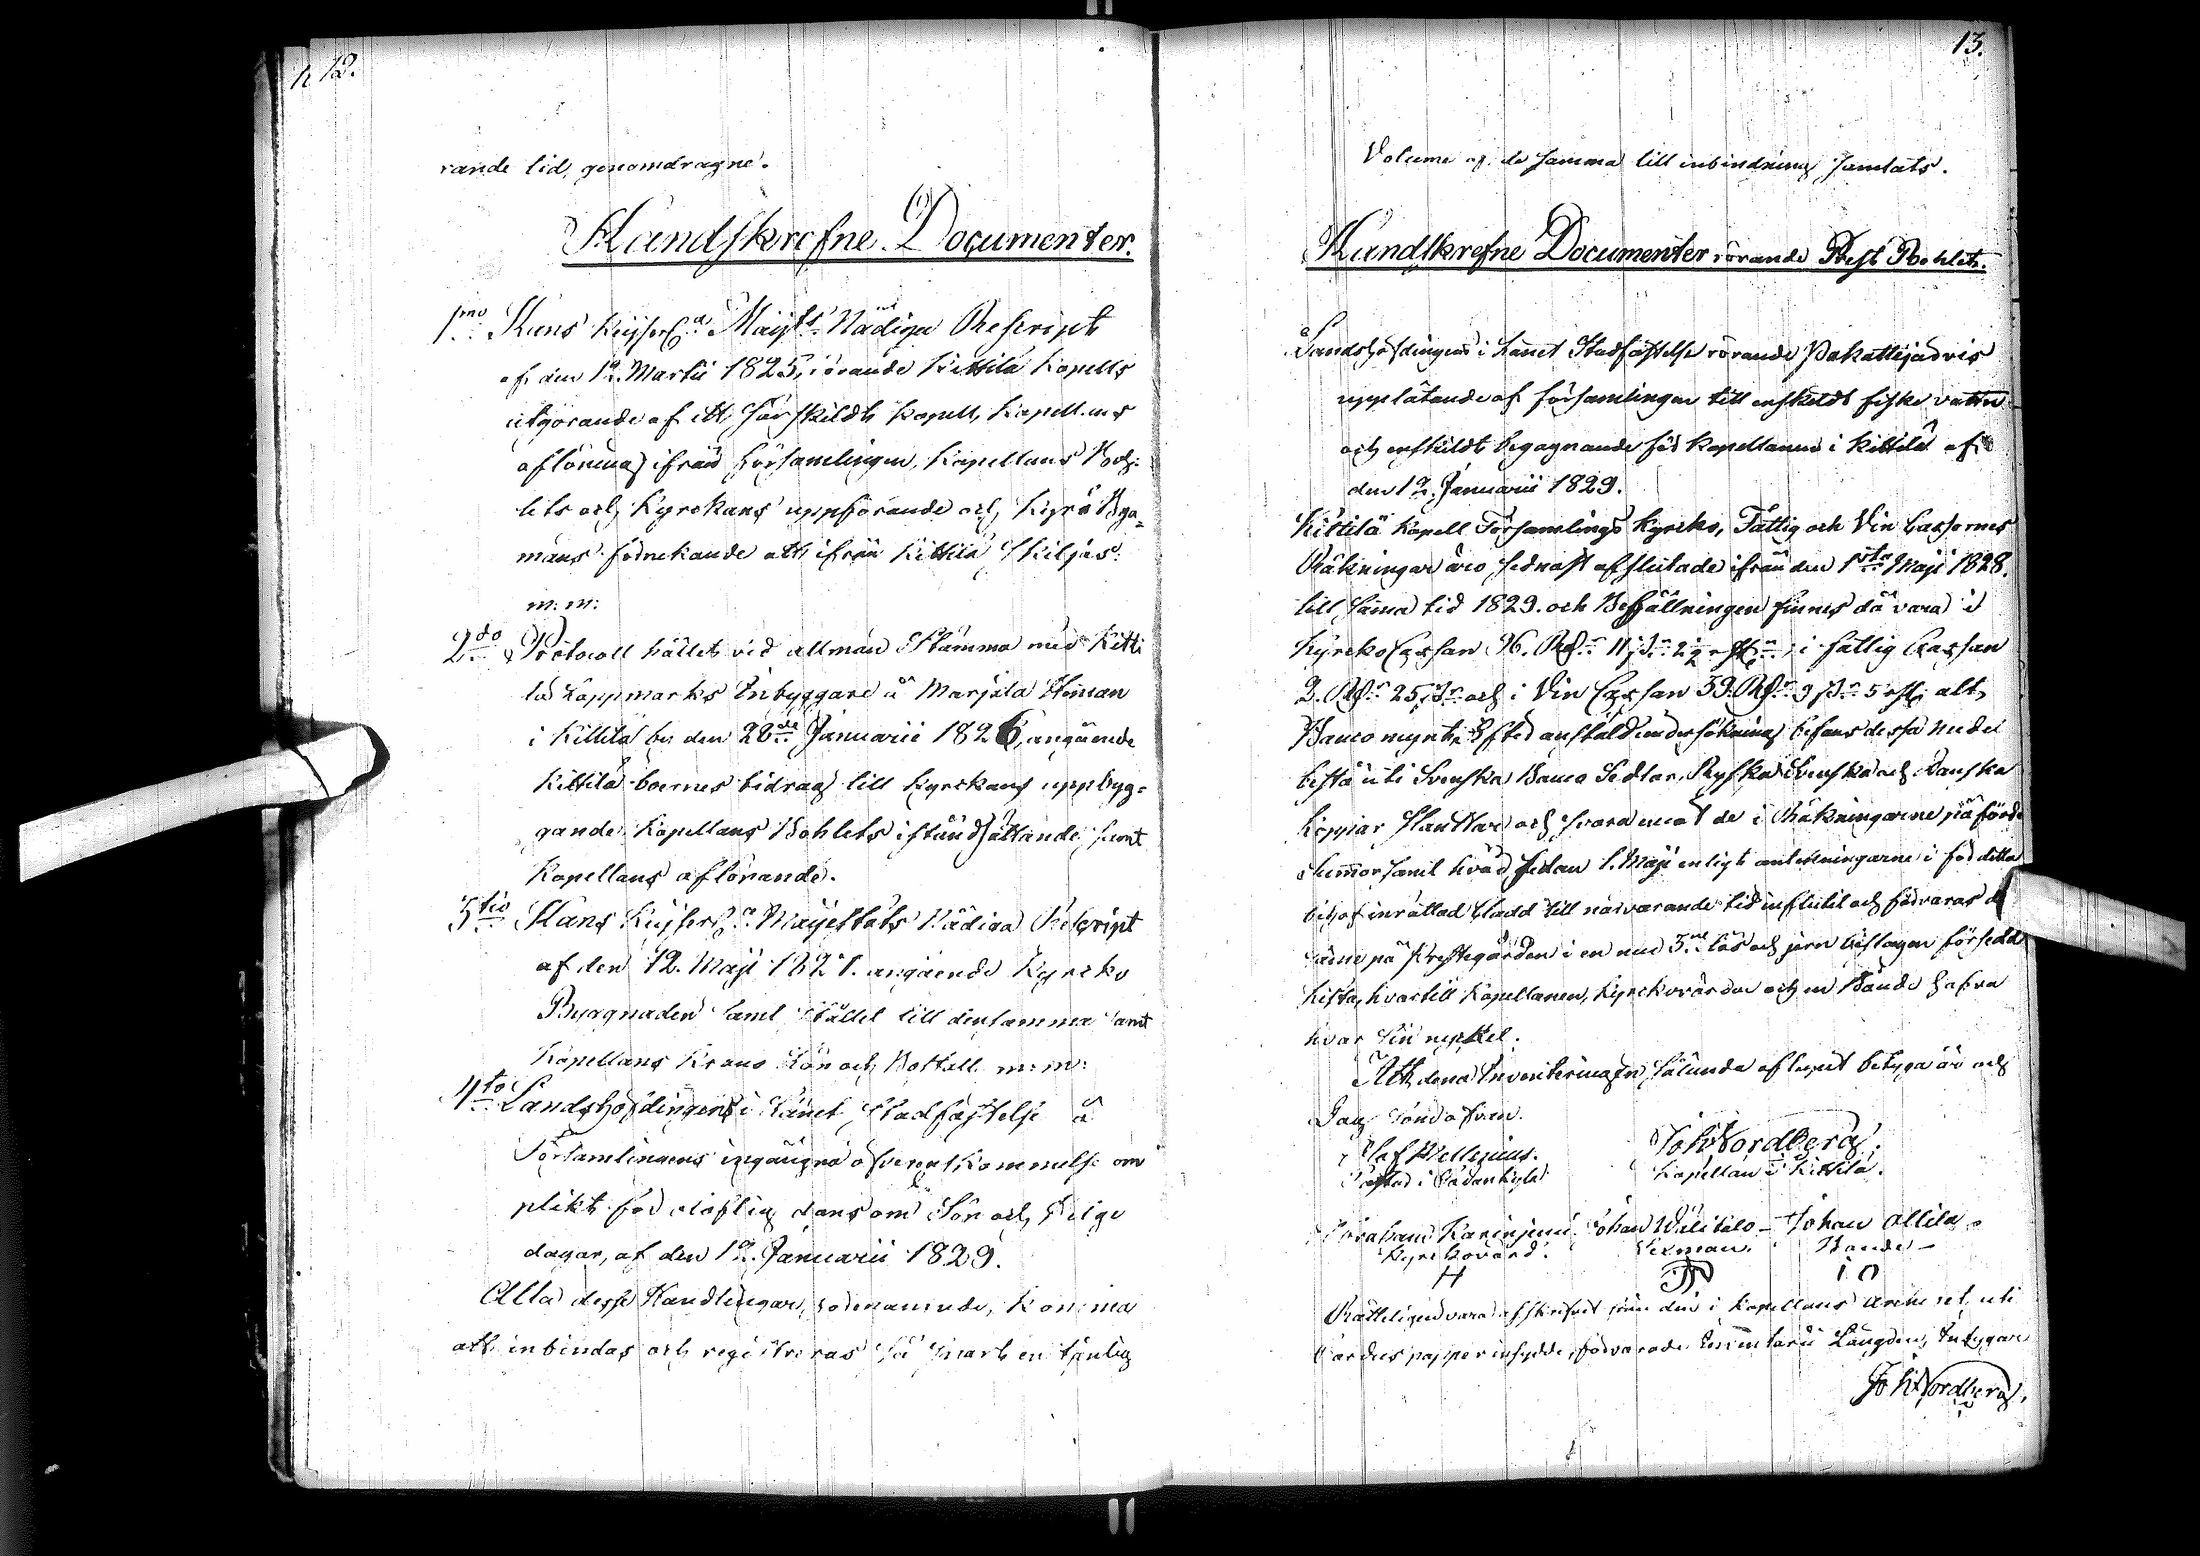 12.
rande tid, genomdragne.
Handskrefne Documenter.
1mo Hans Keijserl:a Maijts Nådiga Rescript
af den 12. Martii 1825, rörande Kittilä Kapells
utgörande af ett särskildt Kapell, Kapell:ns
aflöning ifrån Församlingen, Kapellans Bohls
lets och Kyrckans uppförande och Kyrö Bya-
mäns förnekande att ifrån Kittilä skiljas.
m: m:
2do Protocoll hållet vid allmän Stämma med Kitti
lä Lappmarks Inbyggare å Marjala Heman
i Kittilä by den 28de Januarii 1826, angående
Kittilä boernes bidrag till Kyrckans uppbyg-
gande, Kapellans Bohlets iståndsättande, samt
Kapellans aflönande.
3tio Hans Keijserl:a Majestäts Nådiga Rescript
af den 12. Maji 1827. angående Kyrcko
Byggnaden samt stället till densamma samt
Kapellans Krono Lön och Bostell m: m:
4to Landshöfdingens i Länet Stadfästelse å
Församlingens ingångna öfverenskommelse om
plikt för olaflig dans om Sön och Helge
dagar, af den 12. Januarii 1829.
Alla desse Handlingar, komma
att inbindas och registreras så snart en tjenlig
13.
Volume af de samma till inbindning samlats.
Handskrefne Documenter rörande Prest Bohlet.
Landshöfdingens i Länet Stadfästelse rörande Pakattijärvis
upplåtande af församlingen till enskildt fiske vatten
och enskildt begagnande för Kapellanen i Kittilä af
den 12. Januarii 1829.
Kittilä Kapell Församlings Kyrcko, Fattig och Vin Cassornes
Räkningar äro sednast afslutade ifrån den 1sta Maji 1828.
till samma tid 1829. och Behållningen finnes då vara i
Kyrcko Cassan 96. Rd:r 11 s:r 2½ rst:r, i fattig Cassan
2. Rd:r 25 s:r och i Vin Cassan 39. Rd:r 9 s:r 5 rst. alt
Banco mynt. Efter anstäld undersökning befans dessa medel
bestå uti Svenska Banco Sedlar, Ryska Svenska och Danska
Koppar Slantar och svara emot de i Räkningarne påförde
Summor samt hvad sedan 1. Maji enligt anteckningarne i för detta
behof inrättad bladd till närvarande tid influtit och förvaras de
på Prestegården i en med 3ne lås och jern beslagen försedd
kista, hvartill Kapellanen, Kyrckovärden och en Bonde hafva
hvar sin nyckel.
Att denna Inventering sålunda aflupit betyga år och
Dag som ofvan.
Olof Joh Nordberg.
i Sodankylä Kapellan i Kittilä.
Abraham Johan Johan Ollila
Kyrckovärd. Sexman. Bonde
H i O
Rätteligen vara afskrifvit från den i Kapellans archivet uti
papper förvarade Inventarii Längden, Intygar
Joh Nordberg.